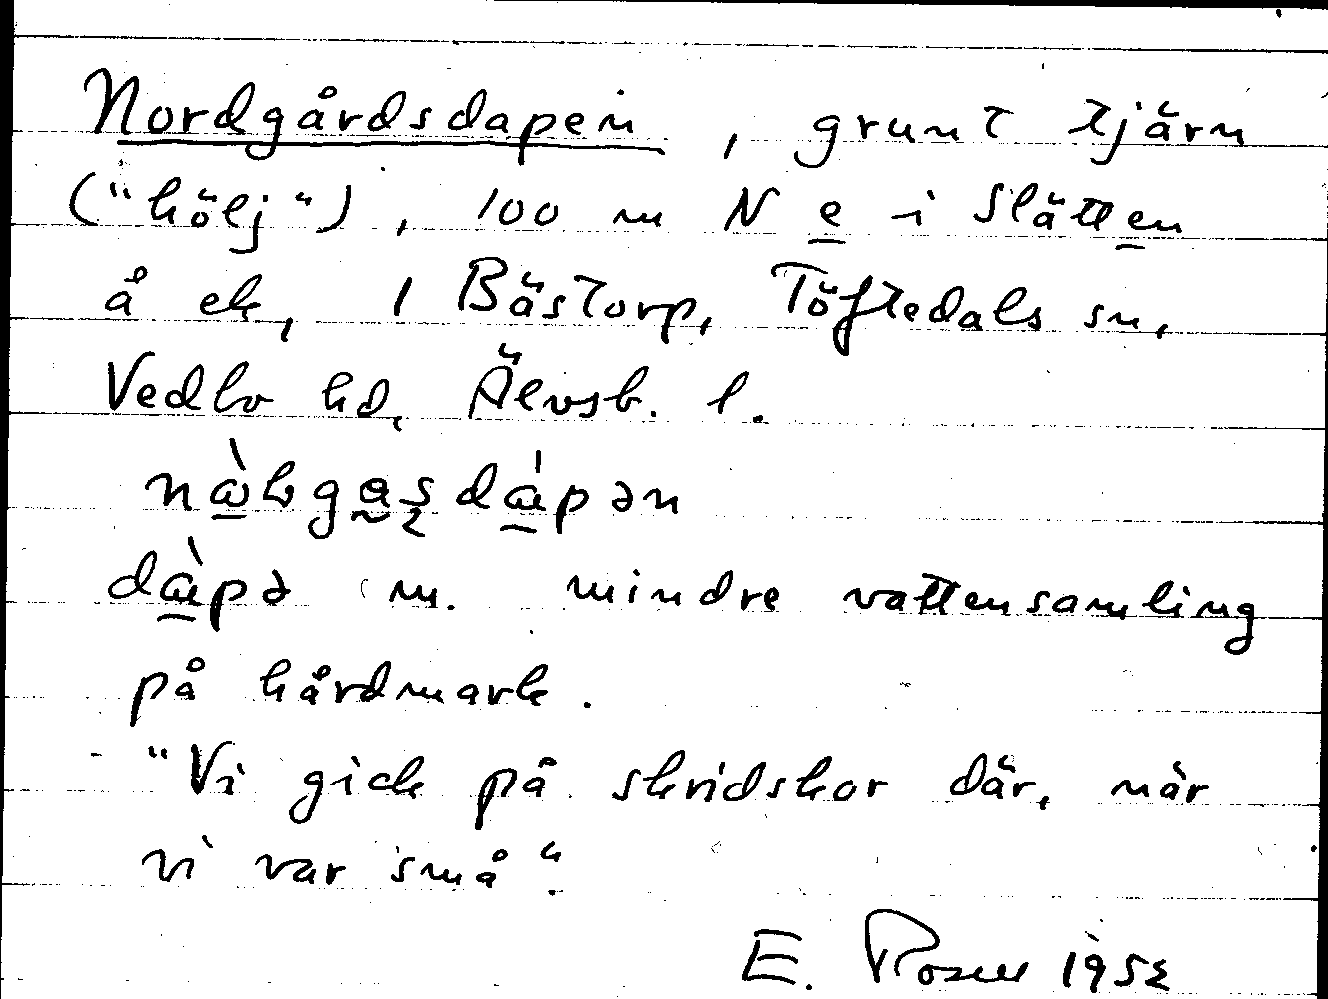 Nordgårdsdapen, grunt tjärn
("hölj"), 100 m N e i Slätten
å ek, 1 Bästorp, Töftedals sn,
Vedbo hd, Älvsb. l.
dàpə m. mindre vattensamling
på hårdmark.
"Vi gick på skridskor där, när
vi var små".
E. Rosell 1952